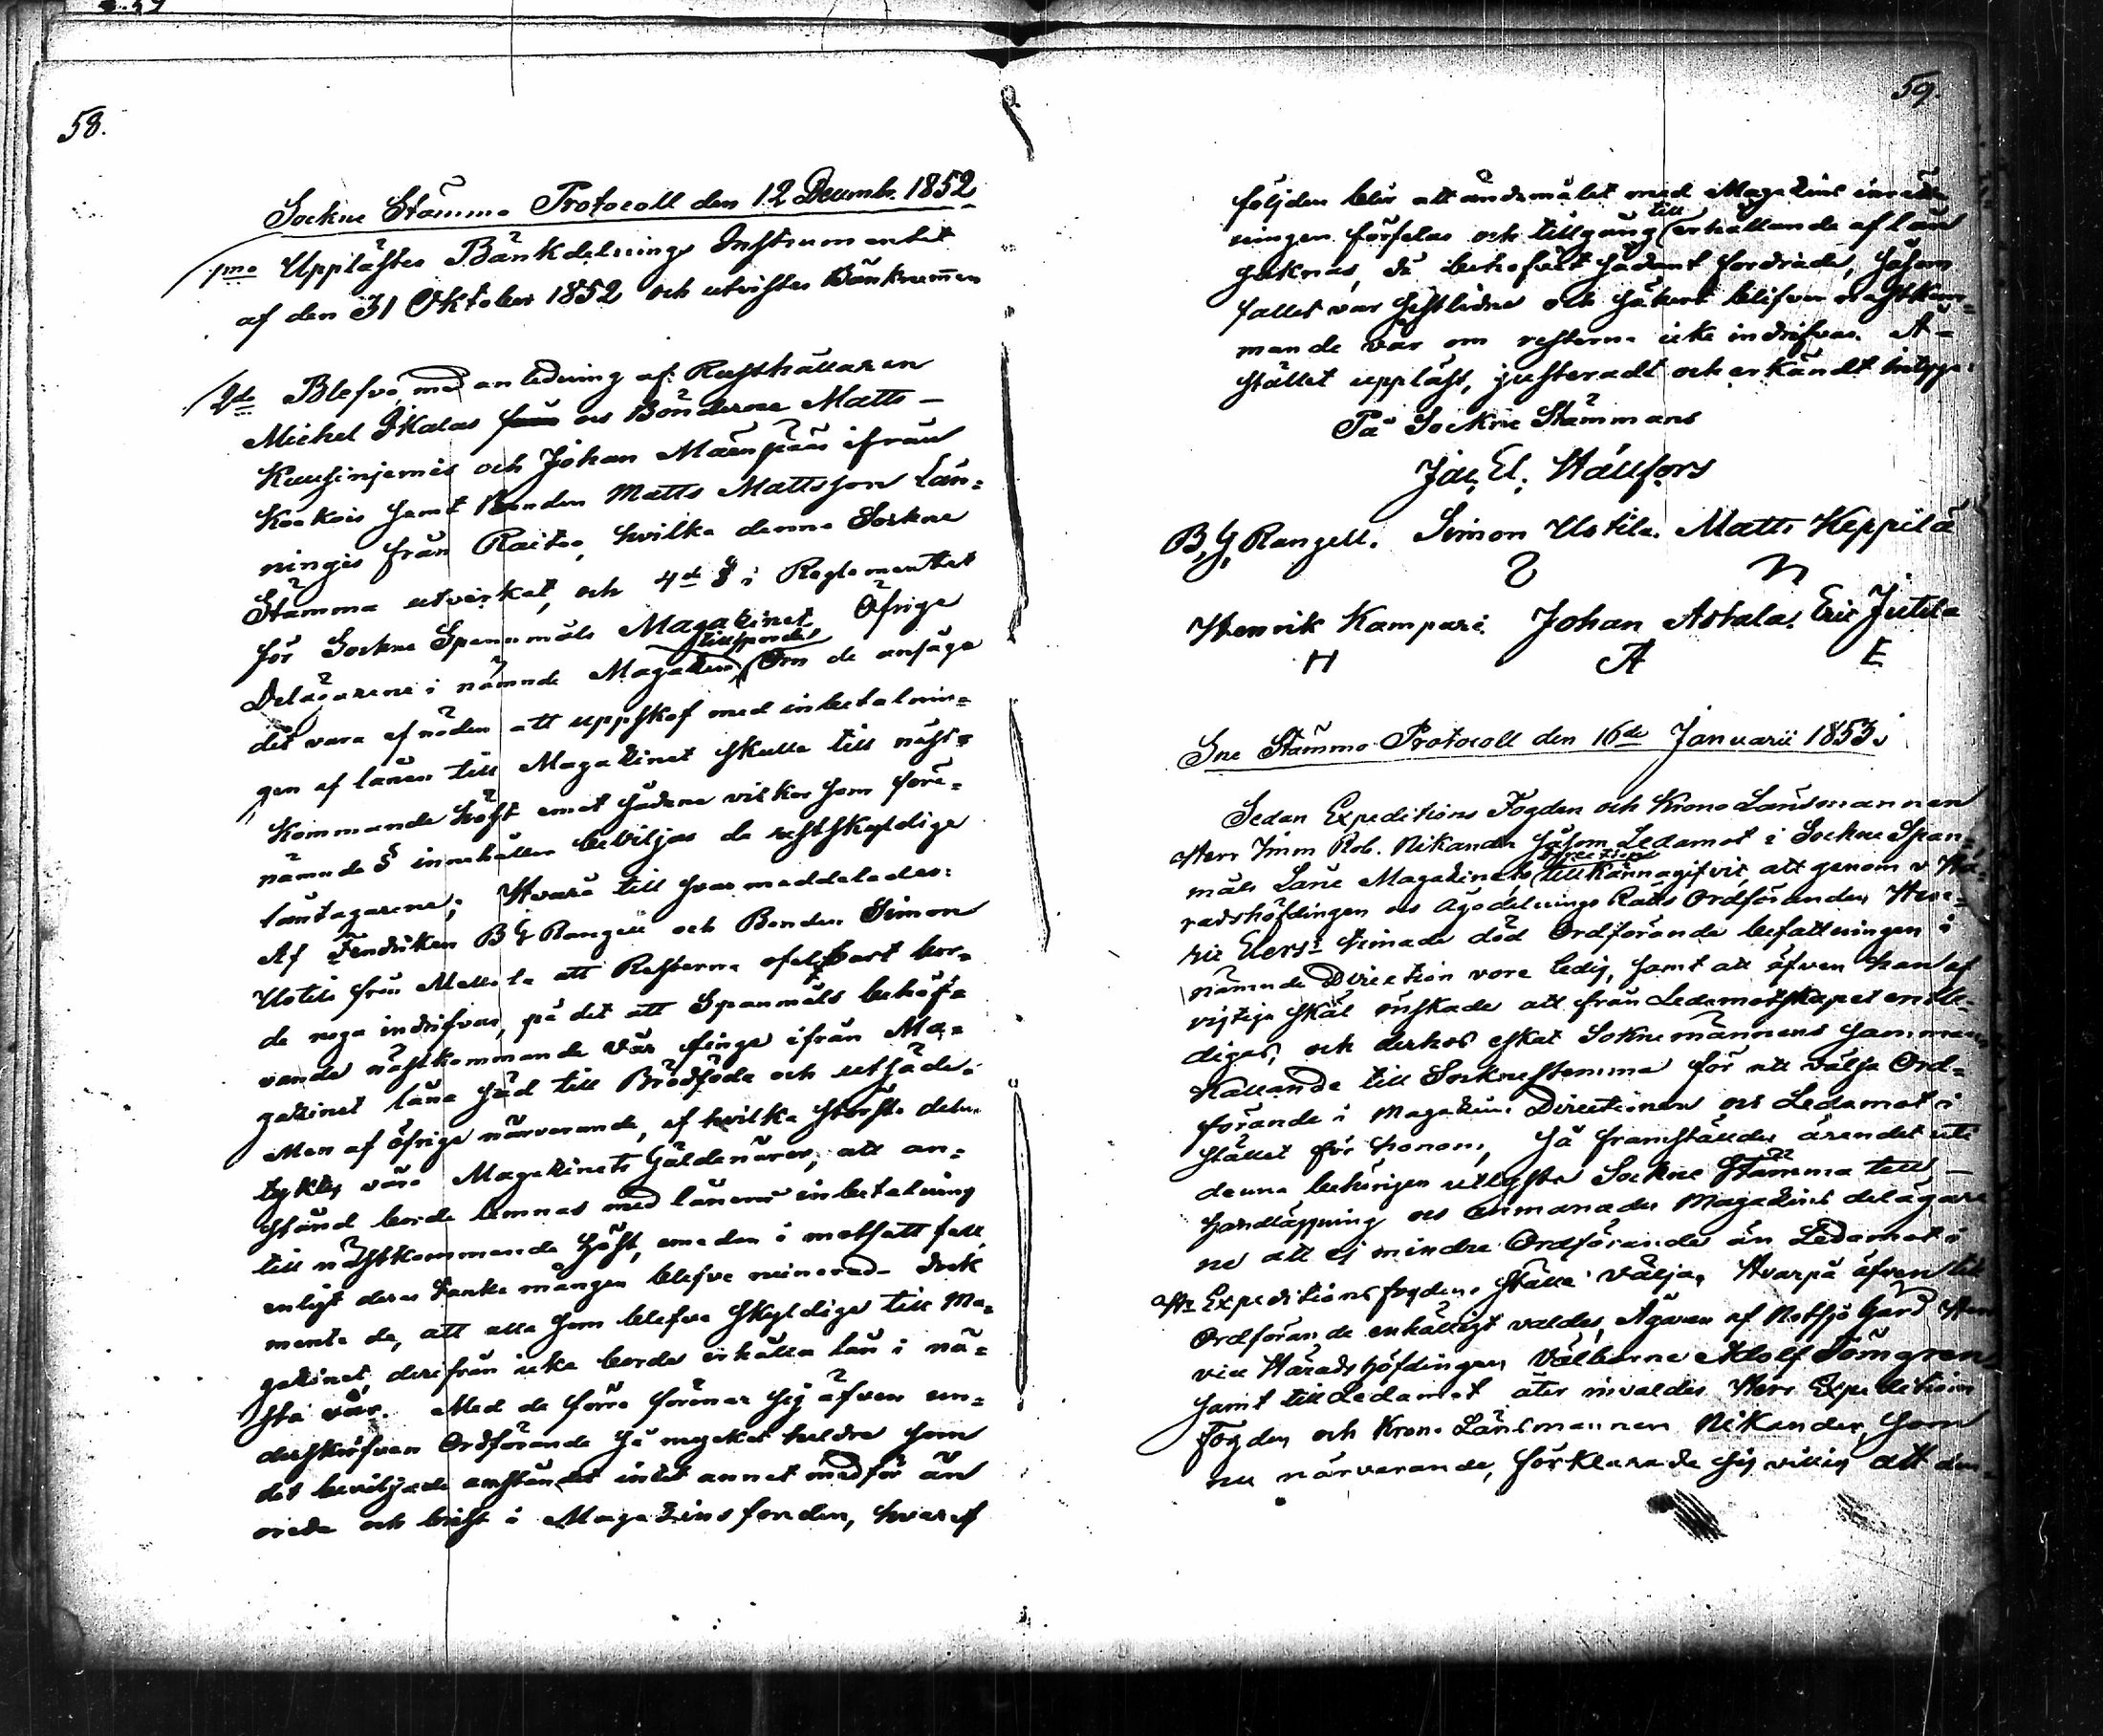 58.
Sockne Stämmo Protocoll den 12 Decembr. 1852
1mo Upplästes Bänkdelnings Instrumentet
af den 31 Oktober 1852 och utvistes Bänkrummen
2do Blefvo, med anledning af Rusthållaren
Michel Skalas och Bönderne Matts
Kuusinjemis och Johan Mäenpääs ifrån
Kockois samt Bonden Matts Mattsson Län-
ningis från Raitoo, hvilka denna Sockne
Stämma utverkat, och 4de § i Reglementet
för Sockne Spannmåls Magazinet Öfrige
Delägarene i nämnde Magazin tillsporde Om de ansågo
det vara af nöden att uppskof med inbetalnin-
gen af lånen till Magazinet skulle till näst-
kommande höst emot sådane vilkor som före-
nämnde § innehåller beviljas de restskyldige
låntagarene; Hvarå till svar meddelades:
Af Fendriken B G Rangell och Bonden Simon
Uotila från Mellola att Resterna ofelbart bor-
de noga indrifvas, på det att Spanmåls behöf-
vande nästkommande vår finge ifrån Ma-
gazinet låna säd till Brödföda och utsäde.
Men af öfrige närvarande, af hvilka största delen
tycktes vara Magazinets Gäldenärer, att an-
stånd borde lemnas med lånens inbetalning
till nästkommande höst, emedan i motsatt fall,
enligt deras tanke mången blefve ruinerad. Dock
mente de, att alla som blefvo skyldige till Ma-
gazinet, derifrån icke borde erhålla lån i nä-
sta vår. Med de förre förenar sig äfven un-
derskrefven Ordförande så mycket heldre som
det beviljade anståndet intet annat medför än
oreda och brist i Magazinsfonden, hvaraf
59.
följden blir att ändamålet med Magazins inrätt-
ningen förfelas och tillgång till erhållande af lån
saknas, då behofvet sådant fordrade, såsom
fallet var sistlidne och säkert blifver nästkom-
mande vår om resterna icke indrifvas. A-
stället uppläst, justeradt och erkändt intyga:
På Sockne Stämmans
Jac. El. Hällfors
B. G. Rangell. Simon Uotila. Matts Keppilä
Henrik Kampari. Johan Astala. Eric Jutila
H A E
Sne Stämmo Protocoll den 16de Januarii 1853.
Sedan Expeditions Fogden och Krono Länsmannen
Herr Imm Rob. Nikander såsom Ledamot i Sockne Span-
måls Låne Magazinets Direction tillkännagifvit, att genom v Hä-
radshöfdingen och Ägodelnings Rätts Ordföranden Hen-
ric Elers timade död Ordförande befattningen i
nämnde Direction vore ledig, samt att äfven han af
vigtiga skäl önskade att från Ledamotskapet entle-
digas, och derhos äskat Soknemännens samman-
kallande till Socknestämma för att välja Ord-
förande i Magazins Directionen och Ledamot i
stället för honom, så framställdes ärendet uti
denna behörigen utlyste Sockne Stämma till
handläggning och anmanades Magazins delägare
ne att ej mindre Ordförande än Ledamot i
Hr Expeditions fogdens ställe välja. Hvarpå äfven till
Ordförande enhälligt valdes, Ägaren af Notsjö Gård Herr
vice Häradshöfdingen Välborne Adolf Törngren,
samt till Ledamot åter invaldes Herr Expeditions
Fogden och Krono Länsmannen Nikander, som
nu närvarande, förklarade sig villig att den-